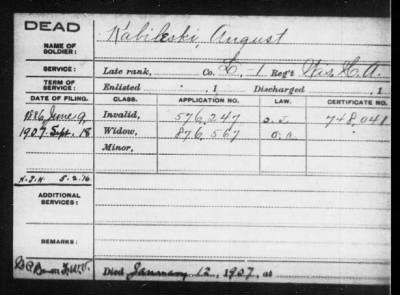 DEAD
NAME OF SOLDIER: Kabileski, August
SERVICE: Late rank, Co. L, 1 Reg't Wis. H. A.
TERM OF SERVICE: Enlisted , 1 Discharged , 1
DATE OF FILING. CLASS. APPLICATION NO. LAW. CERTIFICATE NO.
1886 June 9, Invalid, 576,247 748,041
1907 Sept. 18 Widow, 876,567
Minor,
5-2-16
ADDITIONAL SERVICES:
REMARKS:
Died January 12, 1907, at